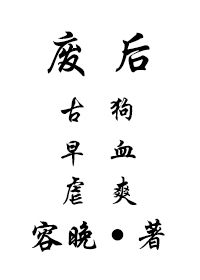 废 后
古 狗
早 血
虐 爽
容晚●著